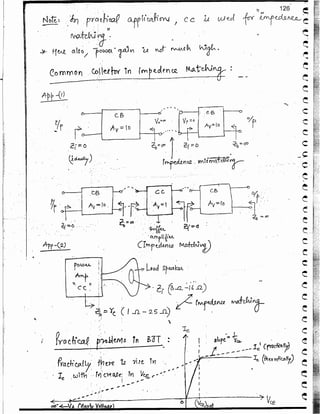 126
Note: In practical applications, CC is used for "impedance
matching".
→ Here also, "power" gain is not much high.
Common Collector in Impedance Matching :
App-(1)
CB
CB
I/p
Av = 10
Av = 10
o/p
Zi = 0
Zo = ∞
Zi = 0
Zo = ∞
Impedance mismatching
CB
CC
CB
I/p
Av = 10
Av = 1
Av = 10
o/p
Zi = 0
Zo = ∞
Zi = 0
Zo = ∞
Buffer
amplifier
(Impedance Matching)
App-(2)
Power
Amp
"CC"
Load Speaker
Zi (8Ω - 16Ω)
Impedance matching
(1Ω - 25Ω)
Practical problems in BJT :
Practically there is rise in
Ic with increase in VCE
Ic
slope =
Ic' (practically)
Ic (theoretically)
VCE
0
(VCE)sat
(Early Voltage)